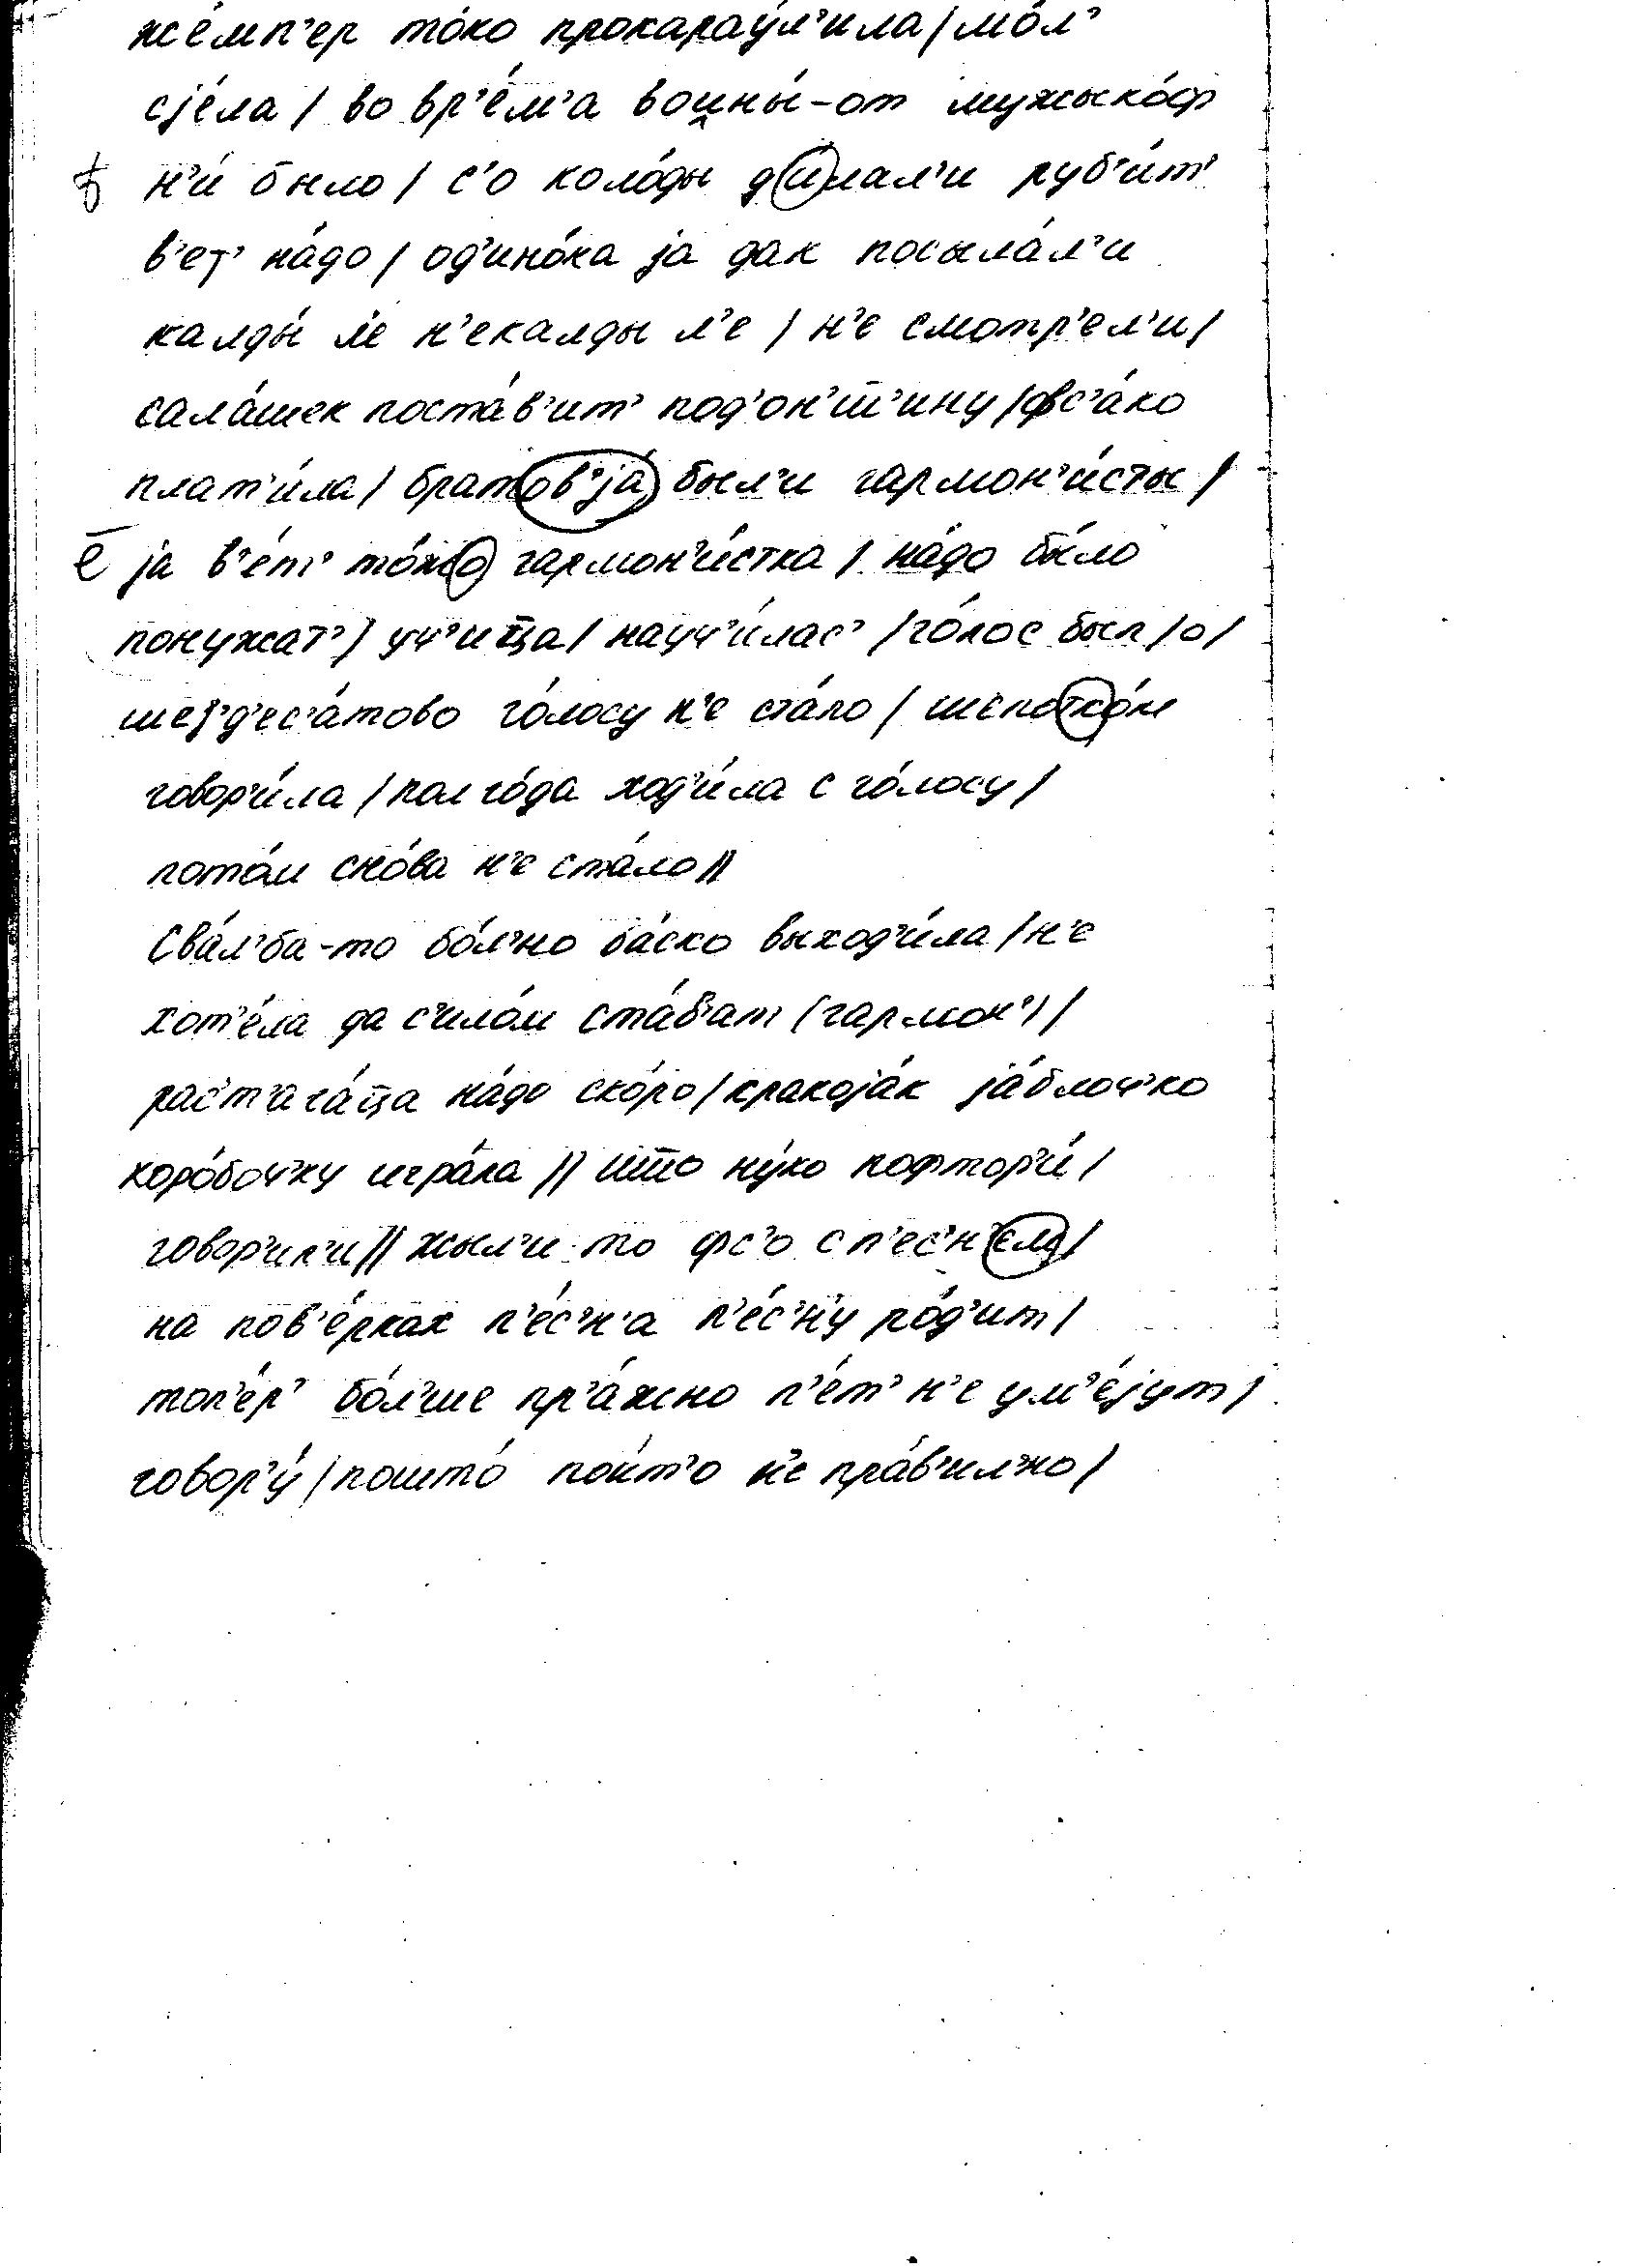 же́мп'ер то́ко прокарау́л'ила / мо́л'
сје́ла / во вр'е́м'а воины́-от мужыко́ф
ѣ н'и́ было / с'о коло́ды д'и́лал'и руб'и́т'
в'ет' на́до / од'ино́ка ја дак посыла́л'и
калды́ л'е н'екалды л'е / н'е смотр'ел'и /
сала́шек поста́в'ит' под'он'ш'ину / фс'а́ко
плат'и́ла / братов'ја́ был'и гармон'и́сты /
е ја в'е́т' то́жо гармон'и́стка / на́до бы́ло
понужат' / уч'ица / науч'и́лас' / го́лос был / о /
шез'д'ес'а́тово го́лосу н'е ста́ло / шепотко́м
говор'и́ла / пол го́да ход'и́ла с го́лосу /
пото́м сно́ва н'е ста́ло //
Сва́л'ба-то бо́л'но ба́ско выход'и́ла / н'е
хот'е́ла да с'ило́м ста́в'ат (гармон') /
рас'т'ага́ца на́до ско́ро / кракоја́к ја́блоч'ко
коро́боч'ку игра́ла // што ну́ко пофтор'и́ /
говор'ил'и // жыл'и-то фс'о с п'ес'н'ем /
на пов'е́рках п'е́с'н'а п'е́с'н'у ро́д'ит /
топ'е́р' бо́л'ше пр'а́жно п'е́т' н'е ум'е́јут /
говор'у́ / пошто́ пои́т'о н'е пра́в'ил'но /